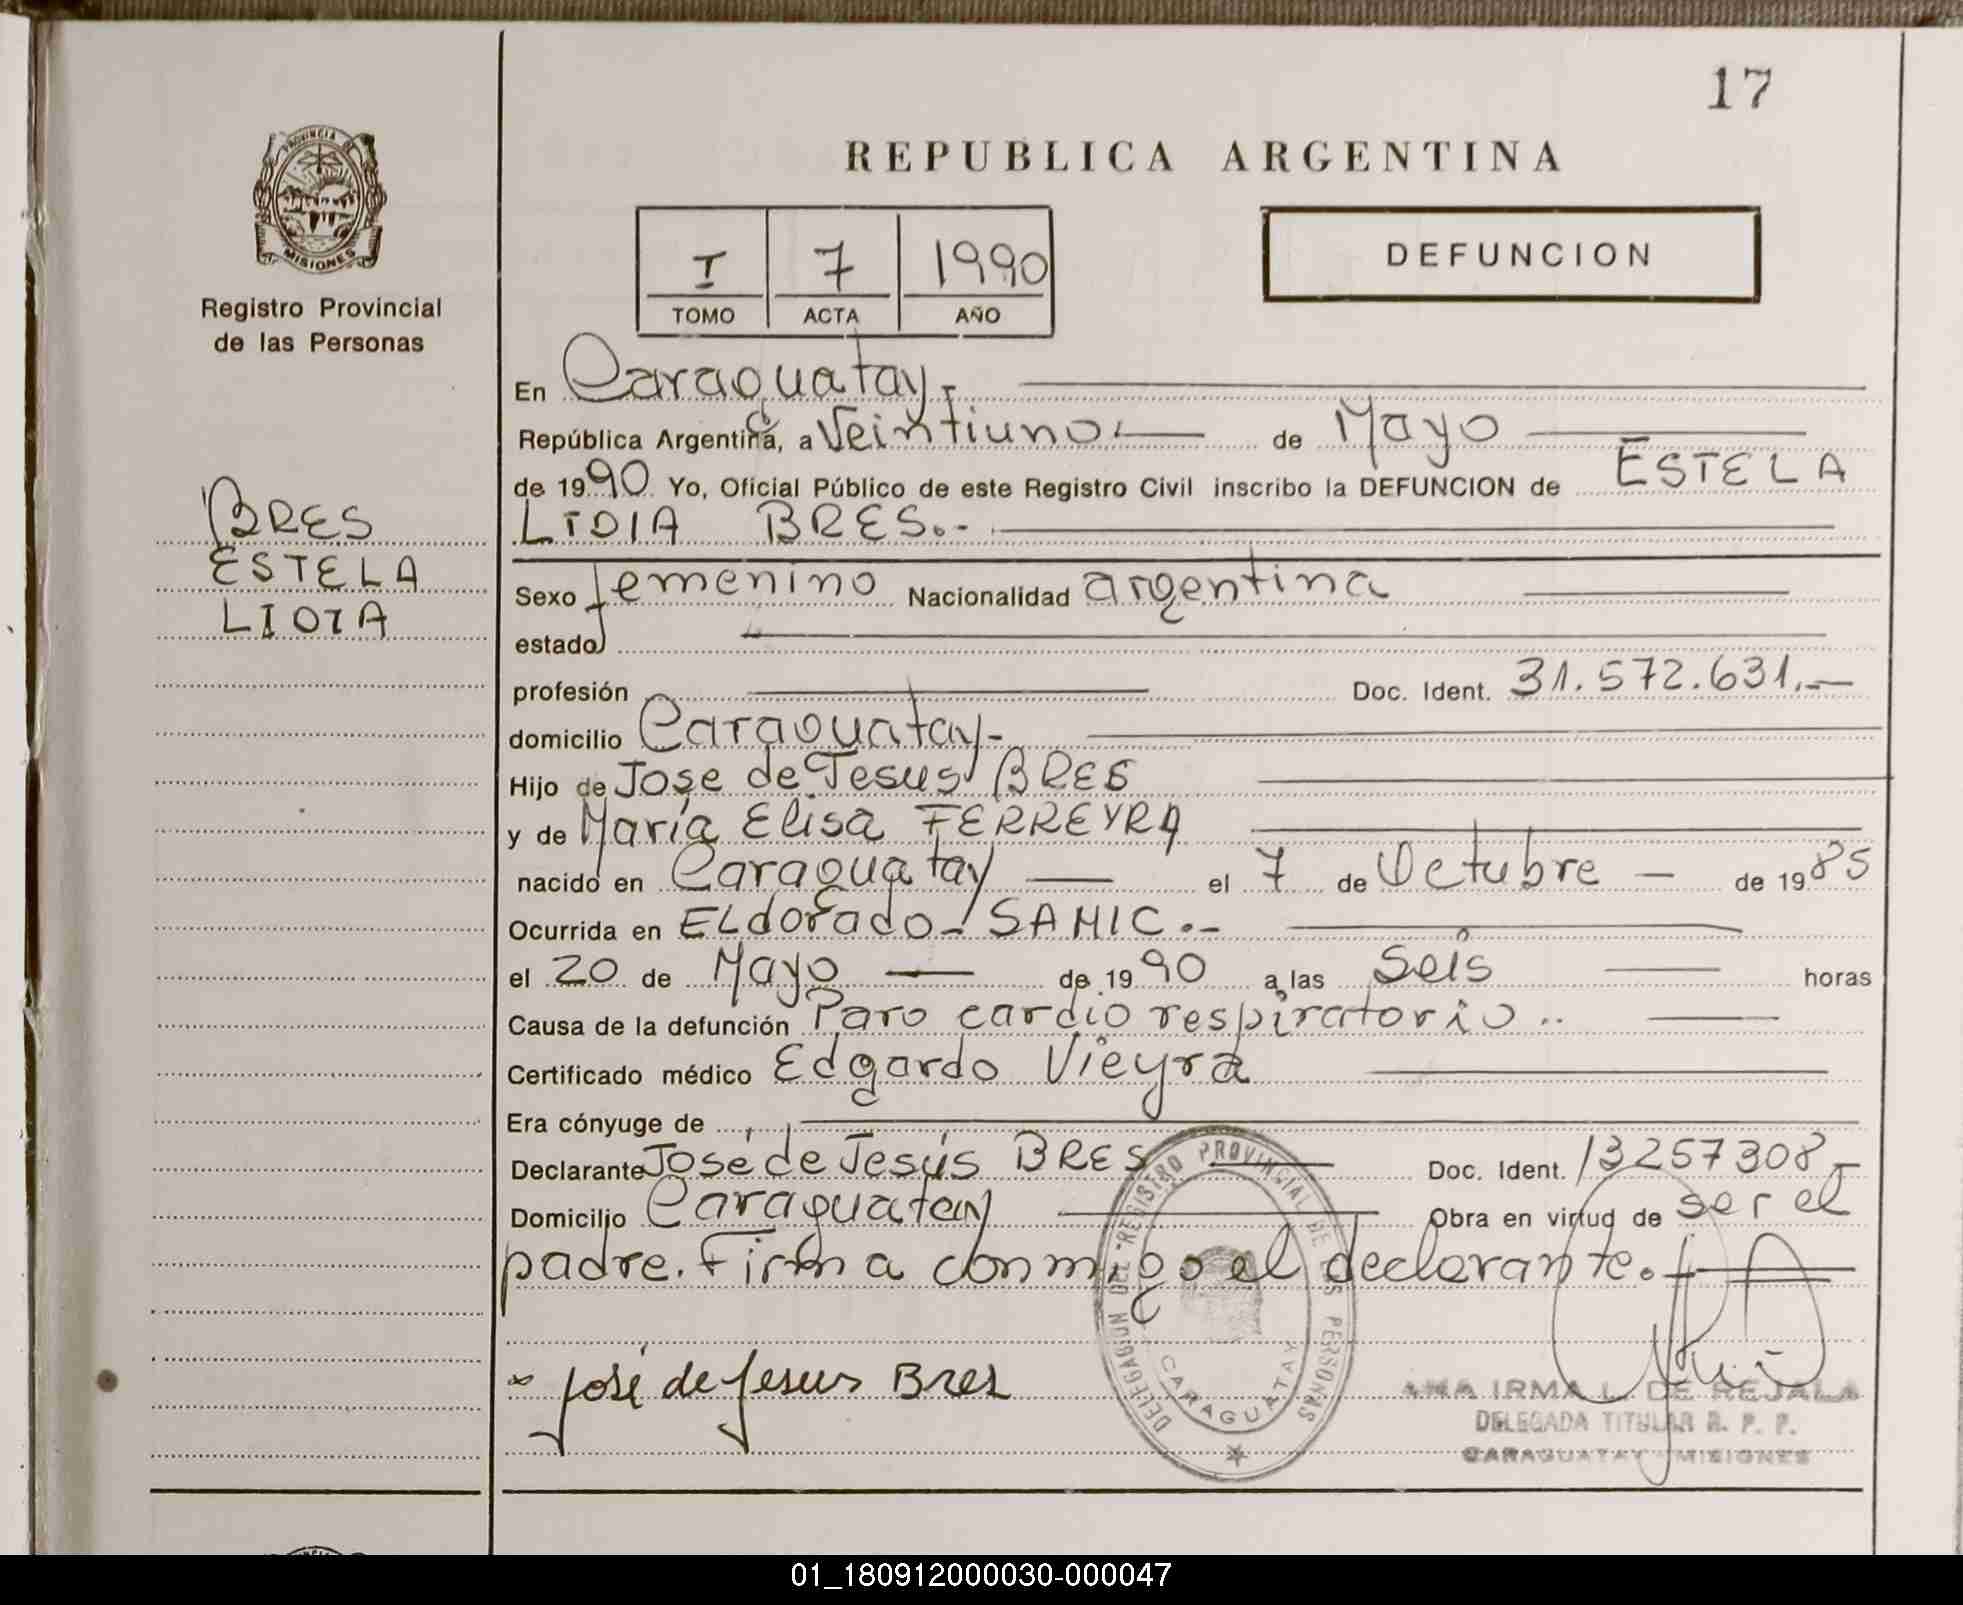 17
REPUBLICA ARGENTINA
PROVINCIA DE
MISIONES
Registro Provincial
de las Personas
I 7 1990
TOMO ACTA AÑO
DEFUNCION
BRES
ESTELA
LIDIA
En Caraguatay.-
República Argentina, a Veintiuno.- de Mayo
de 1990 Yo, Oficial Público de este Registro Civil inscribo la DEFUNCION de ESTELA
LIDIA BRES.-
Sexo femenino Nacionalidad argentina
estado
profesión Doc. Ident. 31.572.631.-
domicilio Caraguatay-
Hijo de Jose de Jesus BRES
y de María Elisa FERREYRA
nacido en Caraguatay el 7 de Octubre de 1985
Ocurrida en ELdorado- SAMIC.-
el 20 de Mayo de 1990 a las Seis horas
Causa de la defunción Paro cardio respiratorio..
Certificado médico Edgardo Vieyra
Era cónyuge de
Declarante José de Jesús BRES Doc. Ident. 13257308-
Domicilio Caraguatay Obra en virtud de ser el
padre. Firma conmigo el declarante.
José de Jesus Bres
DELEGACION DEL REGISTRO PROVINCIAL DE LAS PERSONAS
CARAGUATAY
ANA IRMA L. DE REJALA
DELEGADA TITULAR R. P. P.
CARAGUATAY - MISIONES
01_180912000030-000047